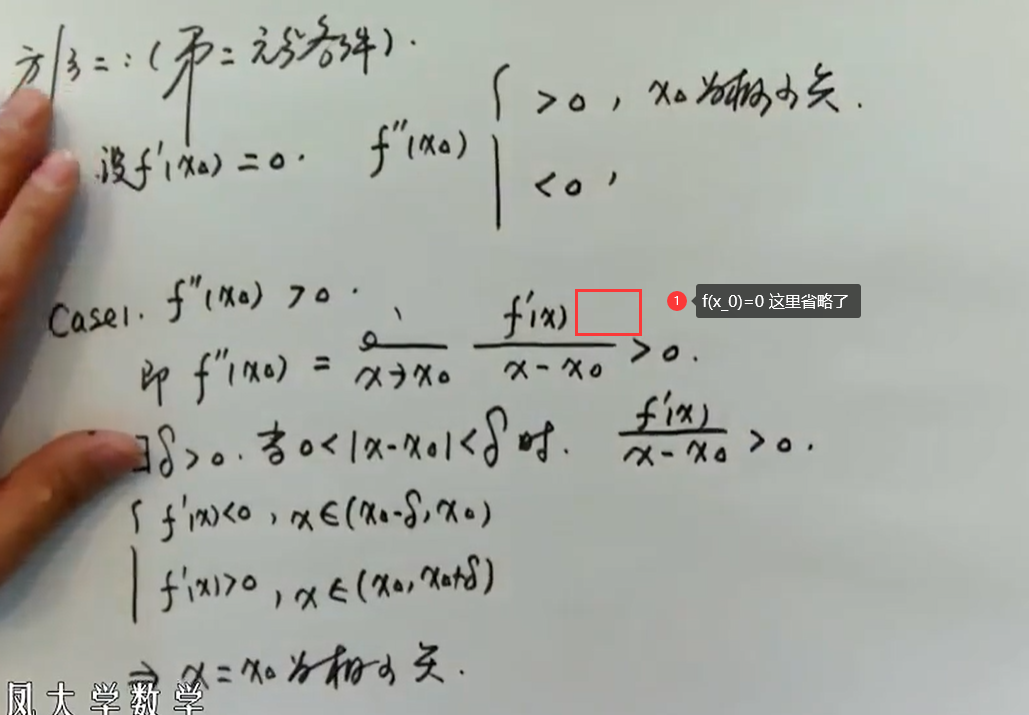 方法二：(第二充分条件).
设f'(x0)=0. f''(x0) { >0, x0为极小点.
<0,
Case1. f''(x0)>0.
即 f''(x0) = lim x→x0 f'(x)/(x-x0) >0.
1 f(x_0)=0 这里省略了
∃δ>0. 当0<|x-x0|<δ时. f'(x)/(x-x0) >0.
{ f'(x)<0, x∈(x0-δ, x0)
f'(x)>0, x∈(x0, x0+δ)
⇒ x=x0为极小点.
凤大学数学